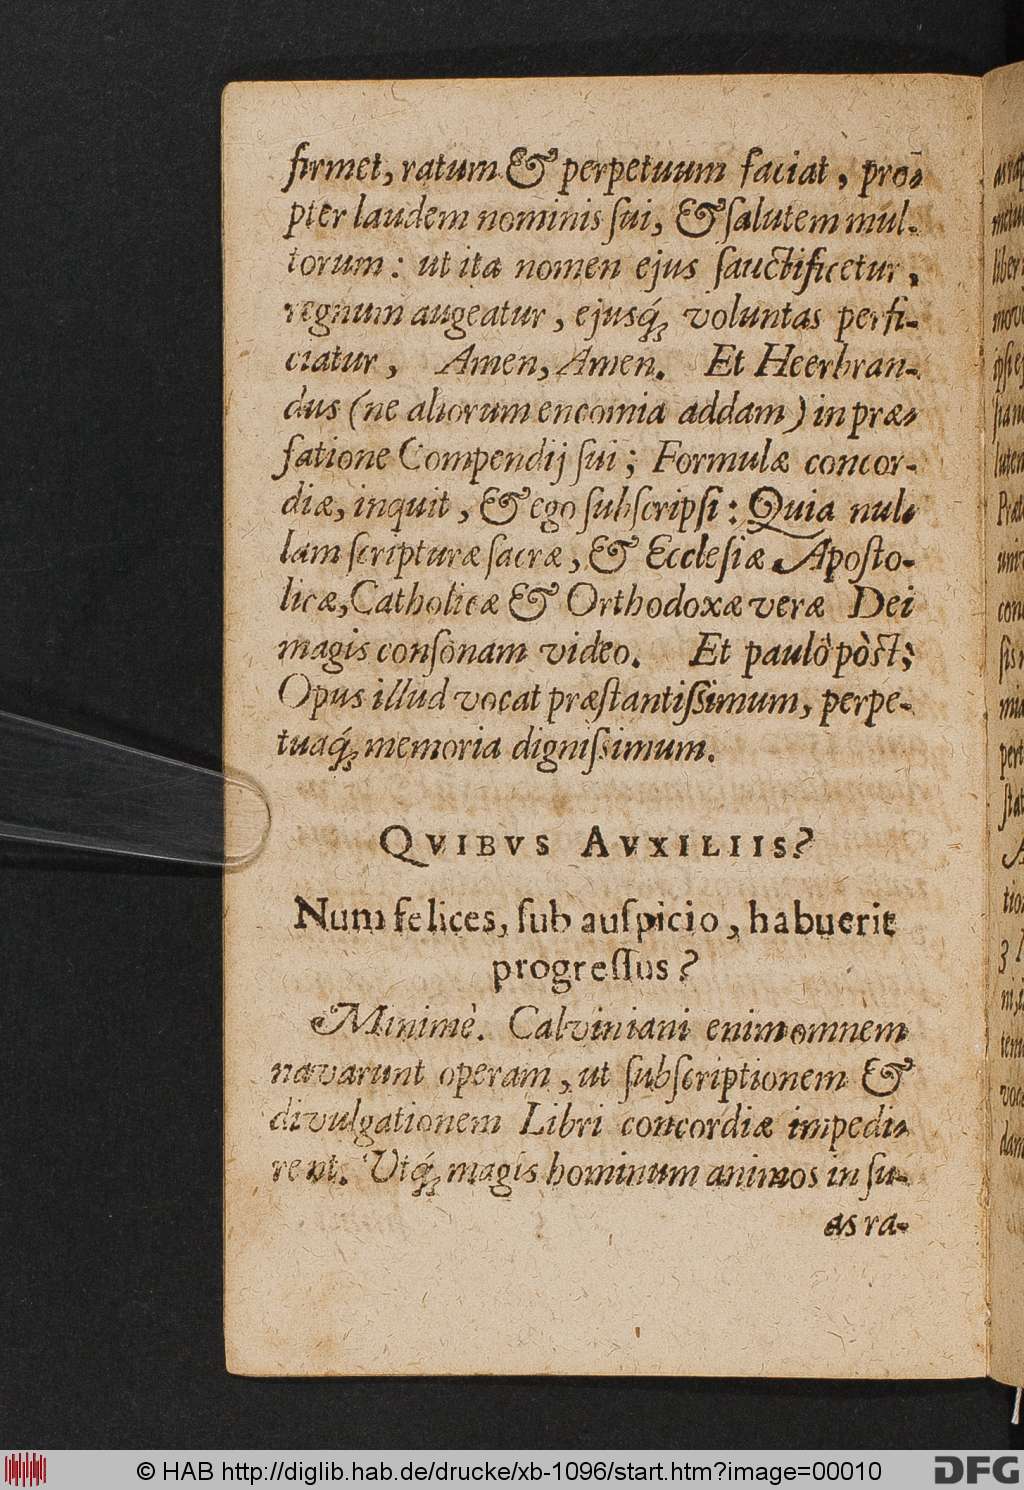 firmet, ratum & perpetuum faciat, pro-
pter laudem nominis sui, & salutem mul-
torum: ut ita nomen ejus sauctificetur,
regnum augeatur, ejusq́; voluntas perfi-
ciatur, Amen, Amen. Et Heerbran-
dus (ne aliorum encomia addam) in præ-
fatione Compendij sui; Formulæ concor-
diæ, inquit, & ego subscripsi: Quia nul-
lam scripturæ sacræ, & Ecclesiæ Aposto-
licæ, Catholicæ & Orthodoxæ veræ Dei
magis consonam video. Et paulò pòst;
Opus illud vocat præstantissimum, perpe-
tuaq́; memoria dignissimum.
QVIBVS AVXILIIS?
Num felices, sub auspicio, habuerit
progressus?
Minimè. Calviniani enim omnem
navarunt operam, ut subscriptionem &
divulgationem Libri concordiæ impedi-
rent. Utq́; magis hominum animos in su-
as ra-
© HAB http://diglib.hab.de/drucke/xb-1096/start.htm?image=00010
DFG